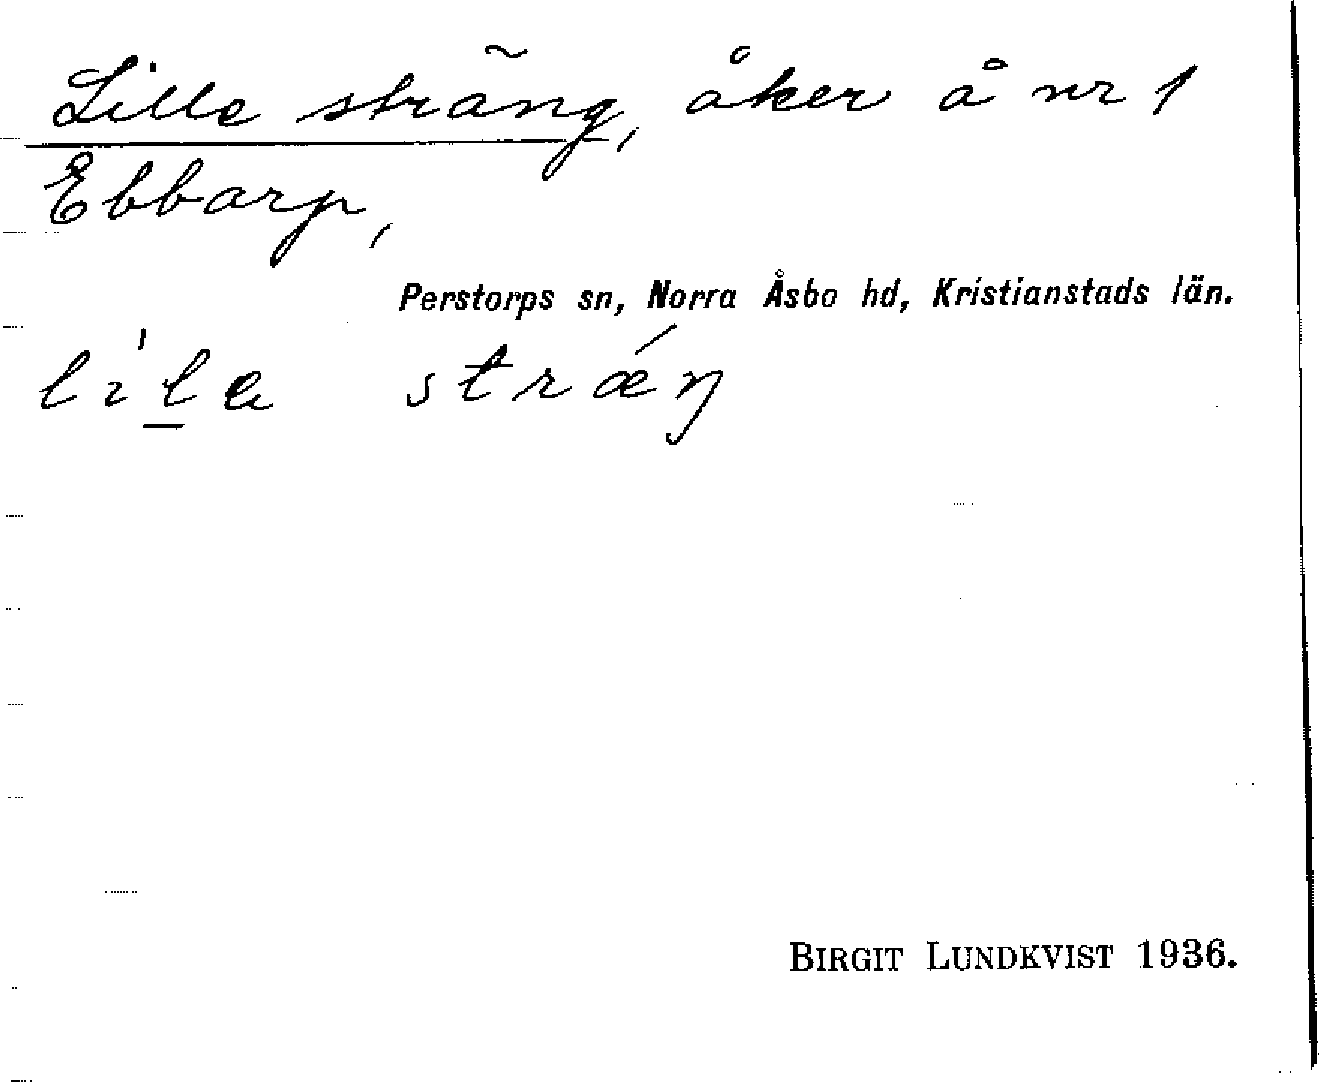 Lille sträng, åker å nr 1
Ebbarp,
Perstorps sn, Norra Åsbo hd, Kristianstads län.
lìla strǽŋ
BIRGIT LUNDKVIST 1936.